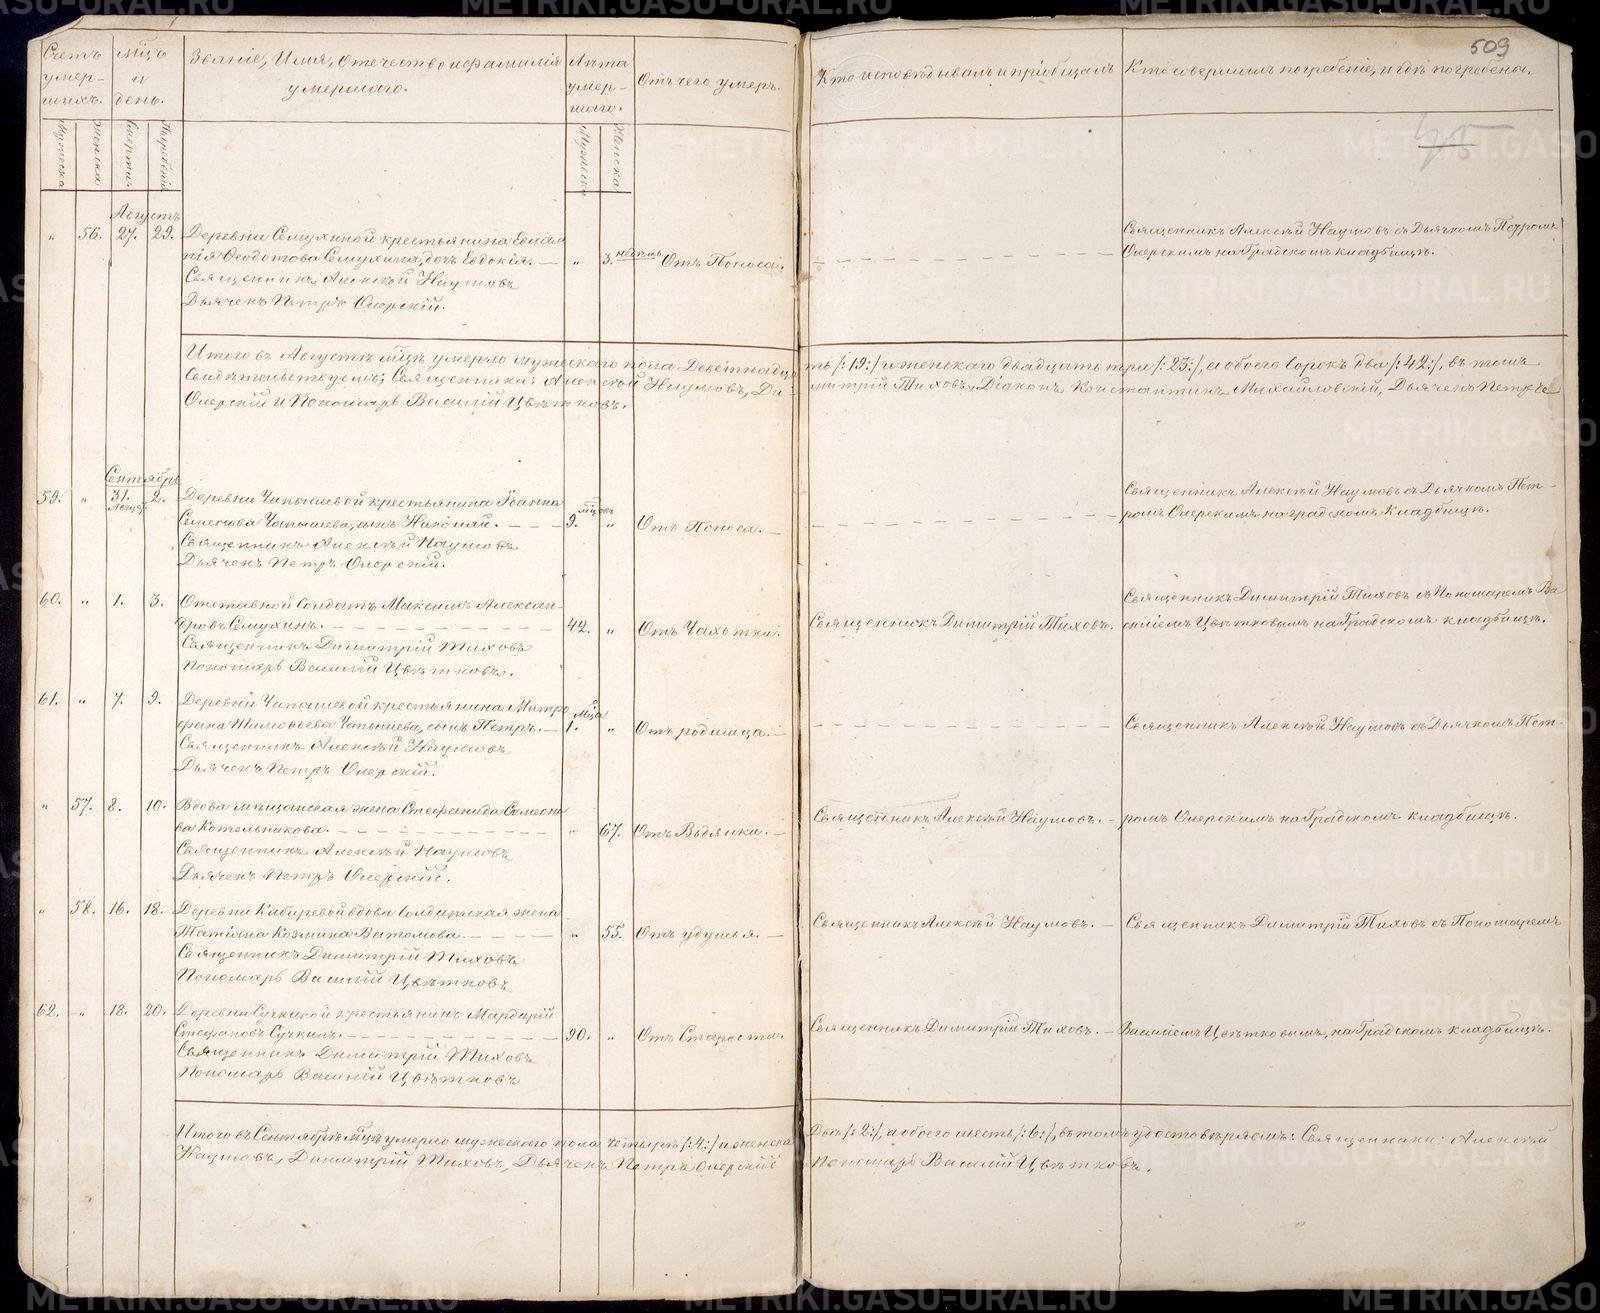 509
Счетъ умер- шихъ.
Мѣцъ и день.
Званіе, Имя, Отечество и фамилія умершаго.
Лѣта умер- шаго.
Отъ чего умеръ.
Кто исповѣдывалъ и пріобщалъ
Кто совершалъ погребеніе, и гдѣ погребены.
Мужеска
Женска
Смерти.
Погребенія
Мужеска
Женска
Августъ
" 56. 27. 29. Деревни Семухиной крестьянина
Ѳеодотова Семухина, дочь Евдокія. — " 3. недѣль Отъ Поноса.
Священникъ Алексѣй Наумовъ
Дьячекъ Петръ Озерскій.
Священникъ Алексѣй Наумовъ съ Дьячкомъ Петромъ
Озерскимъ на Градскомъ кладбищѣ.
Итого въ Августѣ мѣцѣ умерло мужескаго пола Девятнадцать /:19:/ и женскаго двадцать три /:23:/, а обоего Сорокъ два /:42:/, въ томъ
Свидѣтельствуемъ; Священники: Алексѣй Наумовъ, Димитрій Тиховъ, Діаконъ Константинъ Михайловскій, Дьячекъ Петръ
Озерскій и Пономарь Василій Цвѣтковъ.
Сентябрь
59. " 31. Август 2. Деревни Чапышевой крестьянина Іоанна
Семенова Чапышева, сынъ Николай. — 9. мѣцовъ " Отъ Поноса. —
Священникъ Алексѣй Наумовъ
Дьячекъ Петръ Озерскій.
Священникъ Алексѣй Наумовъ съ Дьячкомъ Пет-
ромъ Озерскимъ на градскомъ Кладбищѣ.
60. " 1. 3. Отставной Солдатъ Максимъ Алексан-
дровъ Семухинъ. — 42. " Отъ Чахотки.
Священникъ Димитрій Тиховъ
Пономарь Василій Цвѣтковъ.
Священникъ Димитрій Тиховъ.
Священникъ Димитрій Тиховъ съ Пономаремъ Ва-
силіемъ Цвѣтковымъ на Градскомъ кладбищѣ.
61. " 7. 9. Деревни Чапышевой крестьянина Митро
фана Тимофеева Чапышева, сынъ Петръ. — 1. мѣца " Отъ родимца. —
Священникъ Алексѣй Наумовъ
Дьячекъ Петръ Озерскій.
Священникъ Алексѣй Наумовъ съ Дьячкомъ Пет-
" 57. 8. 10. Вдова мѣщанская жена Стефанида Симеоно
ва Котельникова. — " 67. Отъ Водянки. —
Священникъ Алексѣй Наумовъ
Дьячекъ Петръ Озерскій.
Священникъ Алексѣй Наумовъ. —
ромъ Озерскимъ на Градскомъ кладбищѣ.
" 58. 16. 18. Деревни Кибиревой вдова Солдатская жена
Татіана Козмина Ватомова. — " 55. Отъ удушья. —
Священникъ Димитрій Тиховъ
Пономарь Василій Цвѣтковъ
Священникъ Алексѣй Наумовъ. —
Священникъ Димитрій Тиховъ съ Пономаремъ
62. " 18. 20. Деревни Сучкиной крестьянинъ Мардарій
Стефановъ Сучкинъ. — 90. " Отъ Старости.
Священникъ Димитрій Тиховъ
Пономарь Василій Цвѣтковъ
Священникъ Димитрій Тиховъ. —
Василіемъ Цвѣтковымъ, на Градскомъ кладбищѣ.
Итого въ Сентябрѣ мѣцѣ умерло мужескаго пола четыре /:4:/ и женска Двѣ /:2:/, а обоего шесть /:6:/, въ томъ удостовѣряемъ: Священники: Алексѣй
Наумовъ, Димитрій Тиховъ, Дьячекъ Петръ Озерскій Пономарь Василій Цвѣтковъ.
METRIKI.GASO-URAL.RU